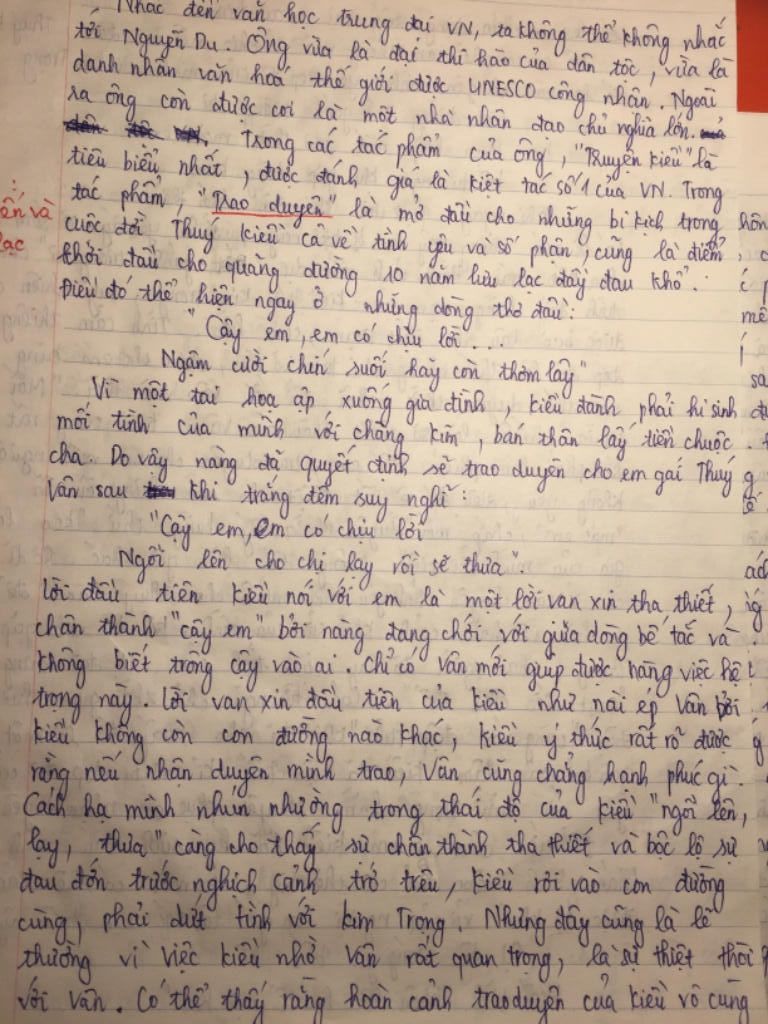 Nhắc đến văn học trung đại VN, ta không thể không nhắc
tới Nguyễn Du. Ông vừa là đại thi hào của dân tộc, vừa là
danh nhân văn hoá thế giới được UNESCO công nhận. Ngoài
ra ông còn được coi là một nhà nhân đạo chủ nghĩa lớn.
Trong các tác phẩm của ông, "Truyện Kiều" là
tiêu biểu nhất, được đánh giá là kiệt tác số 1 của VN. Trong
tác phẩm, "Trao duyên" là mở đầu cho những bi kịch trong
cuộc đời Thuý Kiều cả về tình yêu và số phận, cũng là điểm
khởi đầu cho quãng đường 10 năm lưu lạc đầy đau khổ.
Điều đó thể hiện ngay ở những dòng thơ đầu:
"Cậy em, em có chịu lời...
Ngậm cười chín suối hãy còn thơm lây"
Vì một tai hoạ ập xuống gia đình, Kiều đành phải hi sinh
mối tình của mình với chàng Kim, bán thân lấy tiền chuộc
cha. Do vậy nàng đã quyết định sẽ trao duyên cho em gái Thuý
Vân sau khi trắng đêm suy nghĩ:
"Cậy em, em có chịu lời
Ngồi lên cho chị lạy rồi sẽ thưa".
Lời đầu tiên Kiều nói với em là một lời van xin tha thiết,
chân thành "cậy em" bởi nàng đang chới với giữa dòng bế tắc và
không biết trông cậy vào ai. Chỉ có Vân mới giúp được nàng việc hệ
trọng này. Lời van xin đầu tiên của Kiều như nài ép Vân bởi
Kiều không còn con đường nào khác, Kiều ý thức rất rõ được
rằng nếu nhận duyên mình trao, Vân cũng chẳng hạnh phúc gì.
Cách hạ mình nhún nhường trong thái độ của Kiều "ngồi lên,
lạy, thưa" càng cho thấy sự chân thành tha thiết và bộc lộ sự
đau đớn trước nghịch cảnh trớ trêu, Kiều rơi vào con đường
cùng, phải dứt tình với Kim Trọng. Nhưng đây cũng là lẽ
thường vì việc Kiều nhờ Vân rất quan trọng, là sự thiệt thòi
với Vân. Có thể thấy rằng hoàn cảnh trao duyên của Kiều vô cùng